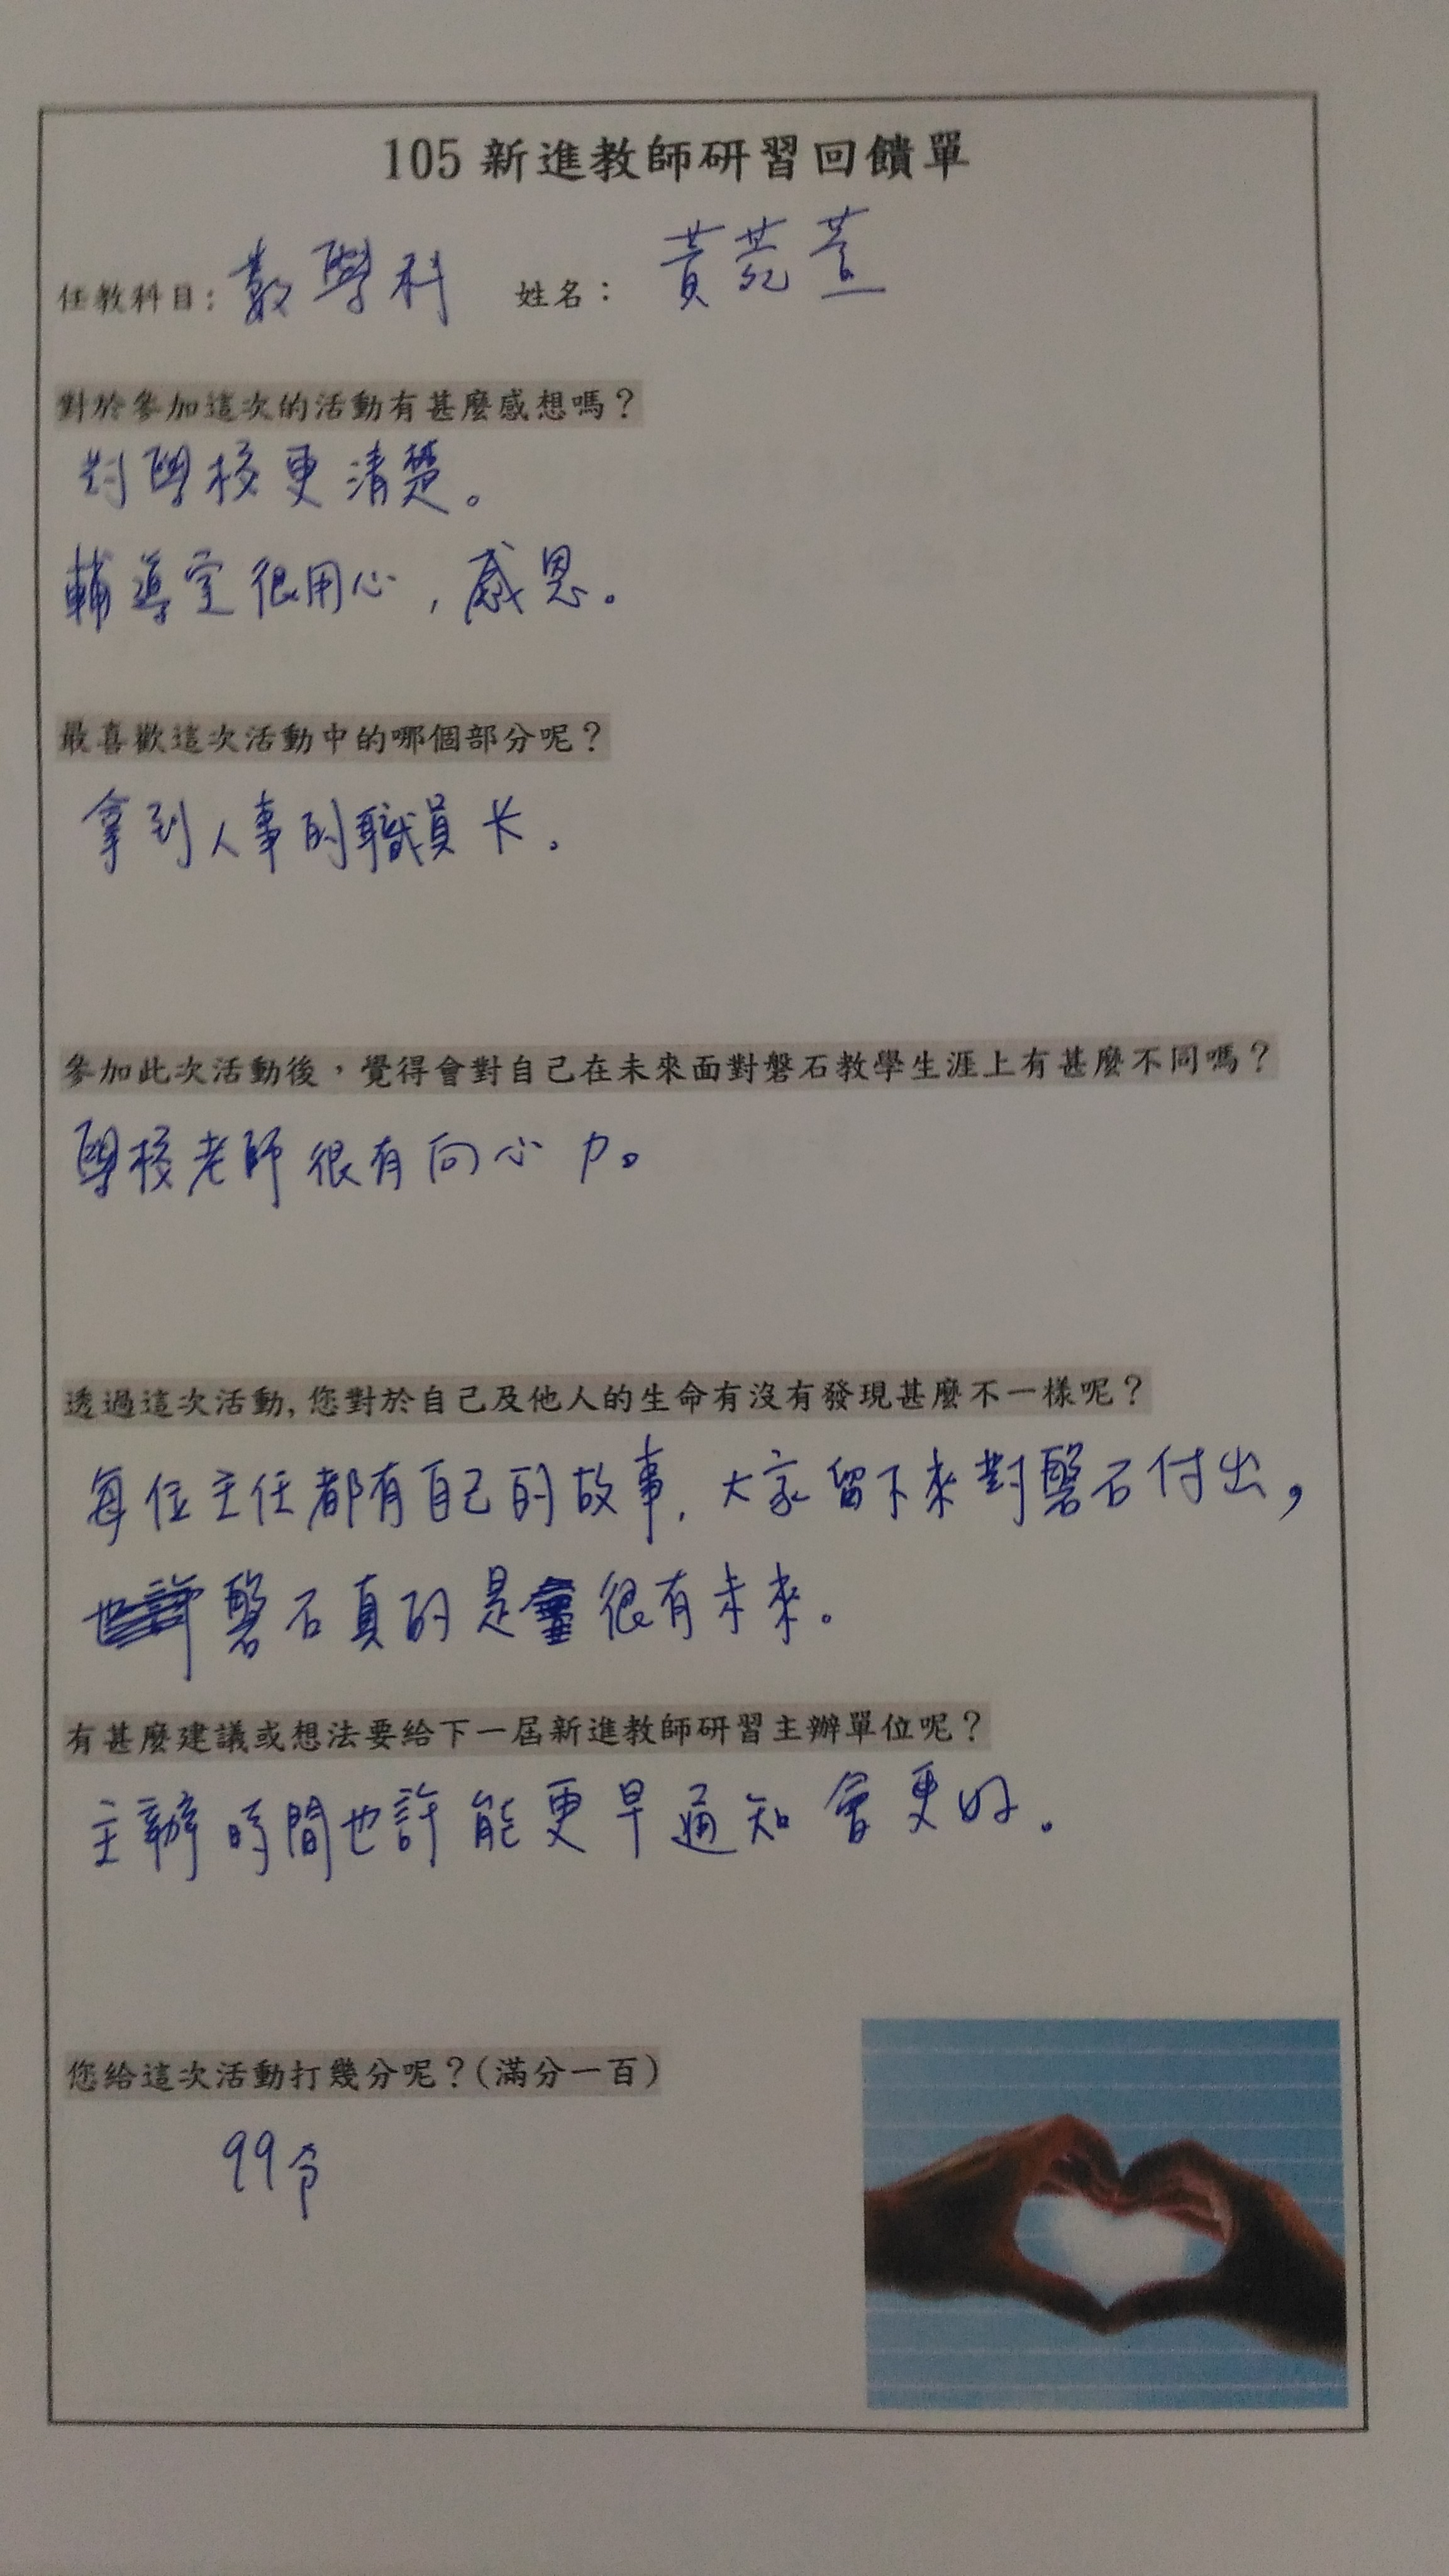 105 新進教師研習回饋單
任教科目：數學科 姓名：黃菀萱
對於參加這次的活動有甚麼感想嗎？
對學校更清楚。
輔導室很用心，感恩。
最喜歡這次活動中的哪個部分呢？
拿到人事的職員卡。
參加此次活動後，覺得會對自己在未來面對磐石教學生涯上有甚麼不同嗎？
學校老師很有向心力。
透過這次活動,您對於自己及他人的生命有沒有發現甚麼不一樣呢？
每位主任都有自己的故事，大家留下來對磐石付出，
磐石真的是很有未來。
有甚麼建議或想法要給下一屆新進教師研習主辦單位呢？
主辦時間也許能更早通知會更好。
您給這次活動打幾分呢？(滿分一百)
99分